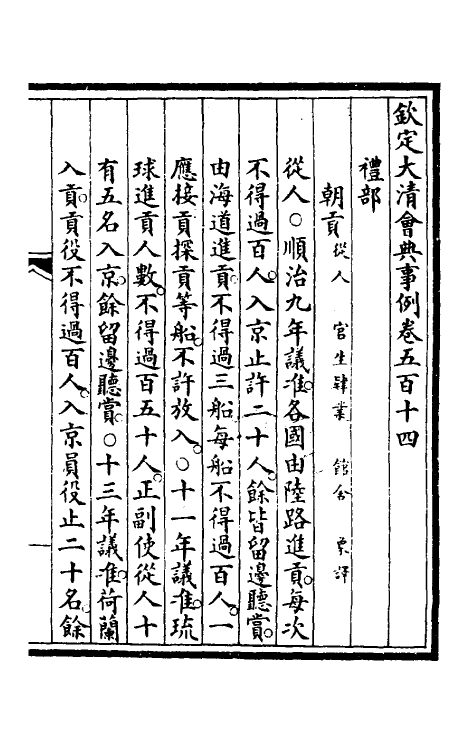 欽定大清會典事例卷五百十四
禮部
朝貢 從人 官生肄業 館舍 象譯
從人○順治九年議准。各國由陸路進貢。每次
不得過百人。入京止許二十人。餘皆留邊聽賞。
由海道進貢。不得過三船。每船不得過百人。一
應接貢探貢等船。不許放入。○十一年議准。琉
球進貢人數。不得過百五十人。正副使從人十
有五名入京。餘留邊聽賞。○十三年議准。荷蘭
入貢。貢役不得過百人。入京員役止二十名。餘